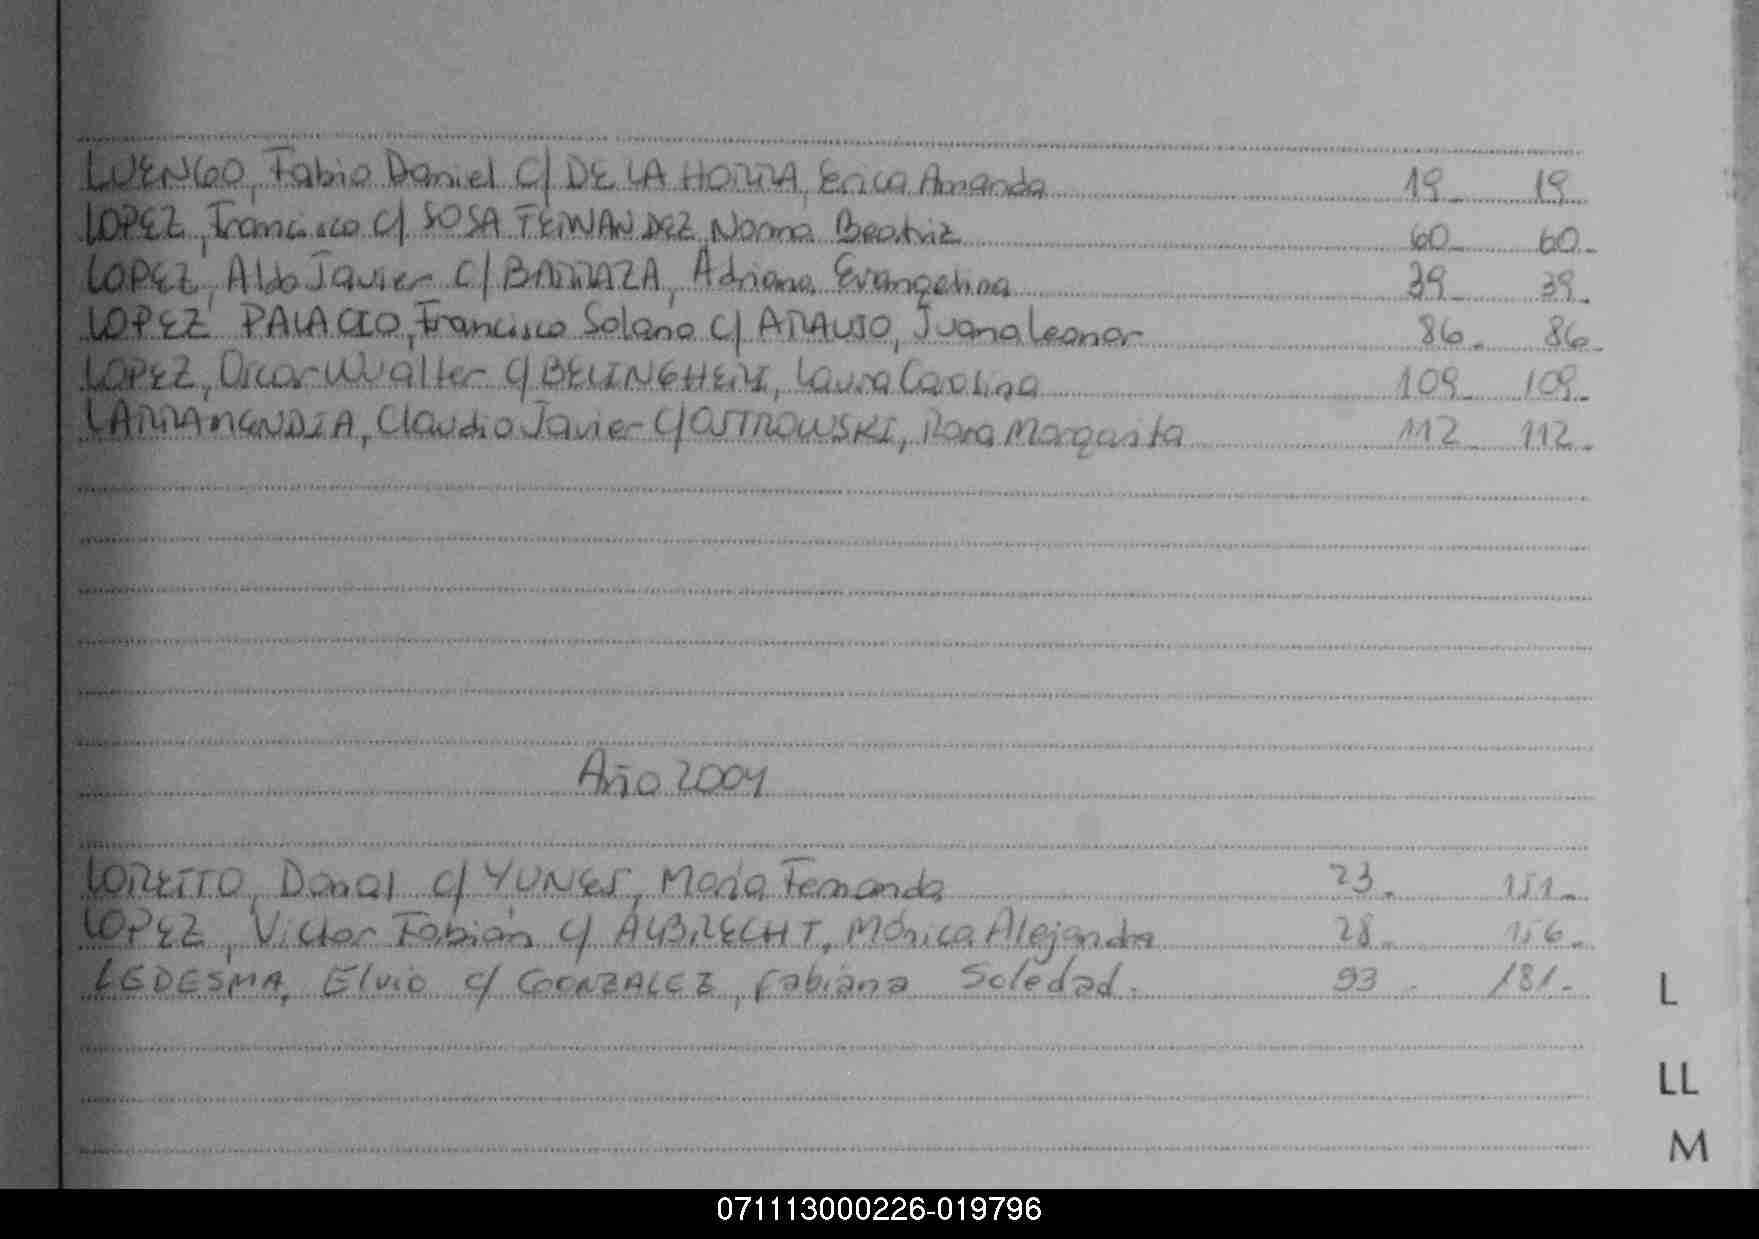 LUENGO, Fabio Daniel C/ DE LA HORRA, Erica Amanda 19 19
LOPEZ, Francisco C/ SOSA FERNANDEZ, Norma Beatriz 60 60
LOPEZ, Aldo Javier C/ BARRAZA, Adriana Evangelina 39 39
LOPEZ PALACIO, Francisco Solano C/ ARAUJO, Juana Leonor 86 86
LOPEZ, Oscar Walter C/ Laura Carolina 109 109
LARRAMENDIA, Claudio Javier C/ OSTROWSKI, Margarita 112 112
Año 2004
LORETTO, Donal C/ YUNES, María Fernanda 23 151
LOPEZ, Victor Fabián C/ ALBRECHT, Mónica Alejandra 28 156
LEDESMA, Elvio C/ GONZALEZ, Fabiana Soledad. 93 181
L
LL
M
071113000226-019796